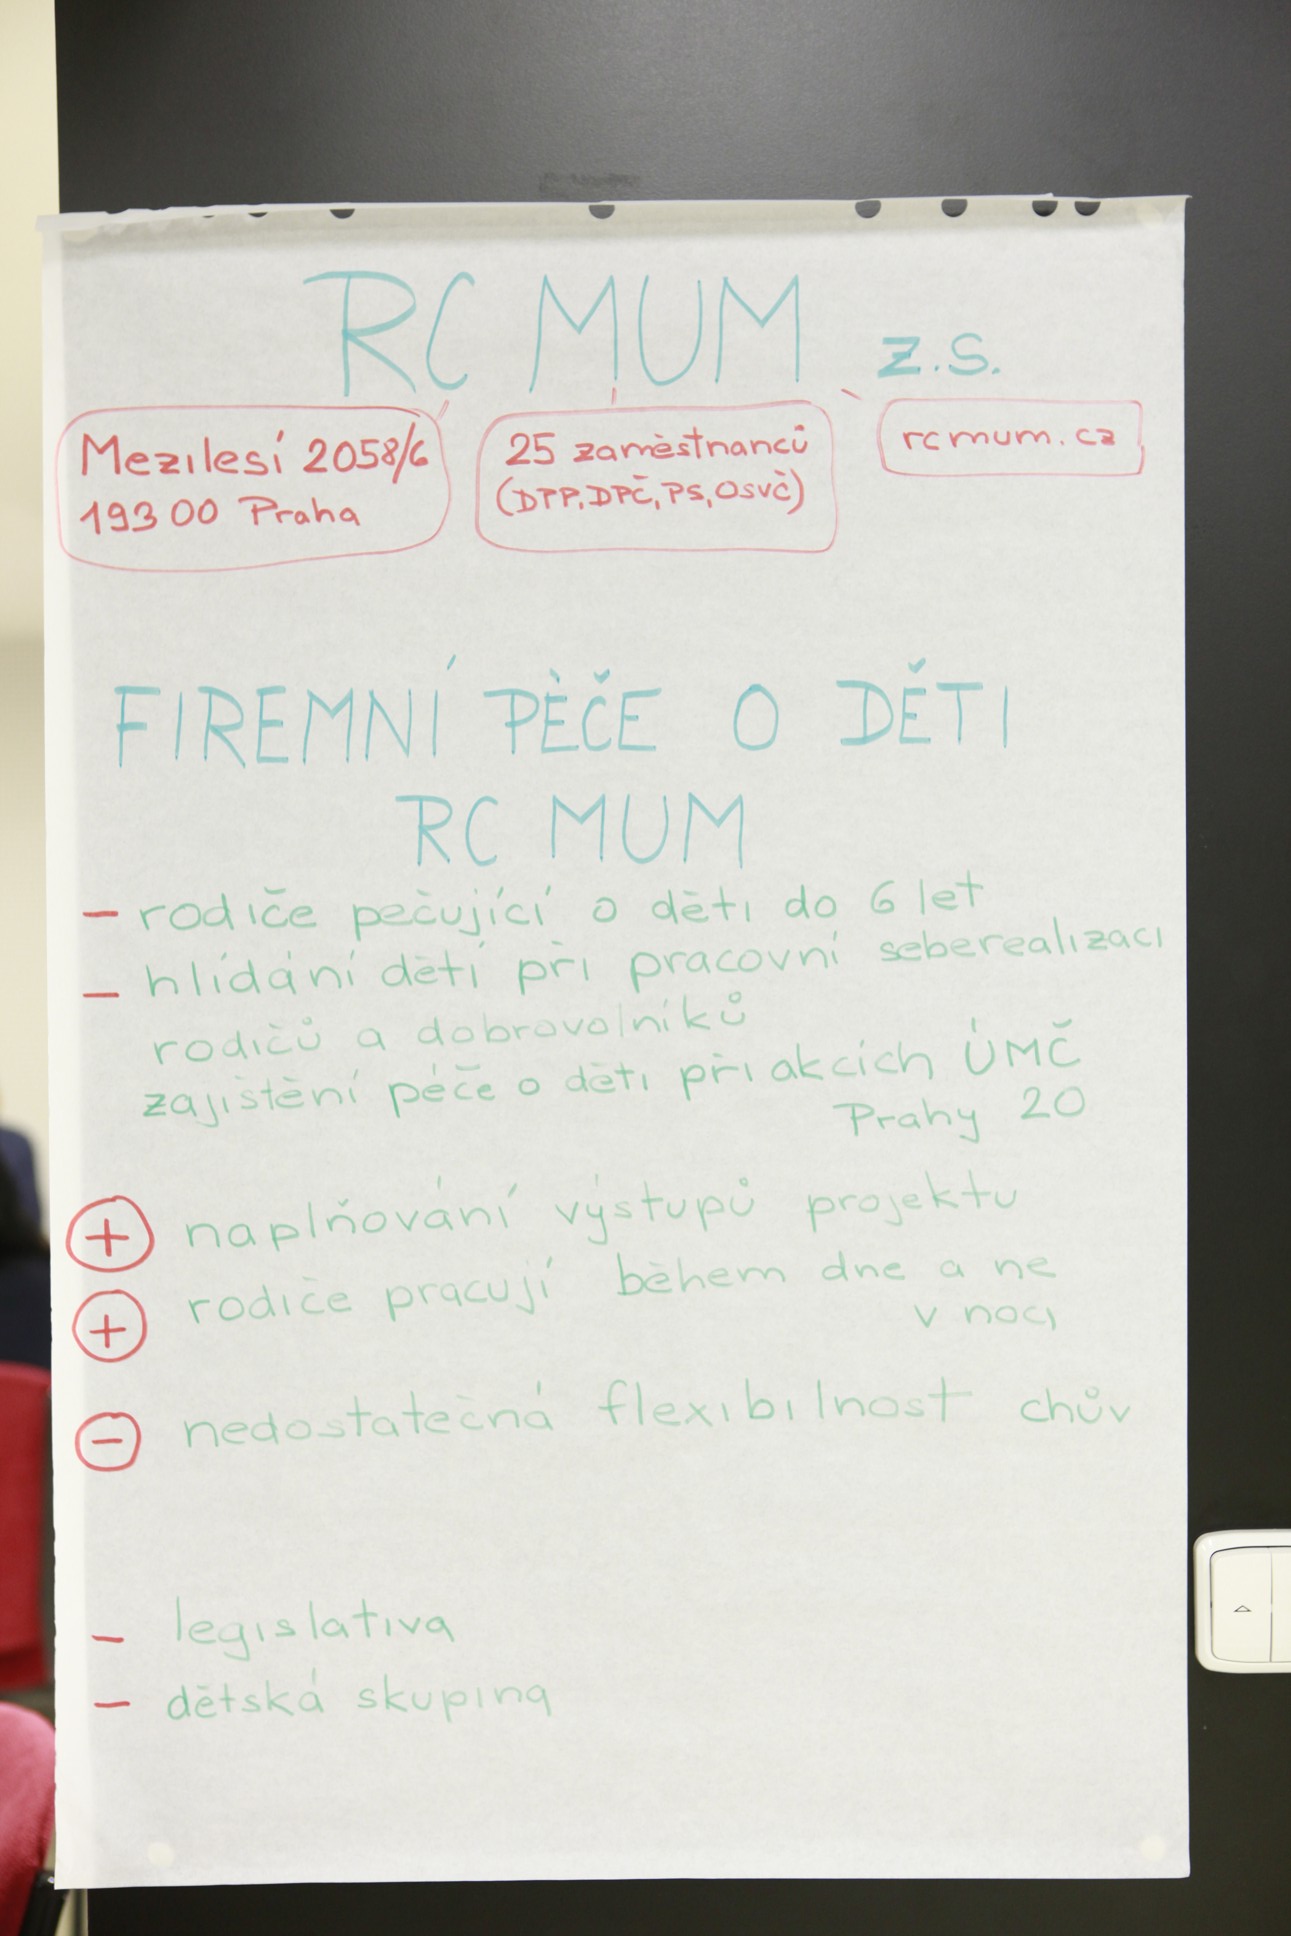 RC MUM z.s.
Mezilesí 2058/6
193 00 Praha
25 zaměstnanců
(DPP, DPČ, PS, OSVČ)
rcmum.cz
FIREMNÍ PÉČE O DĚTI
RC MUM
- rodiče pečující o děti do 6 let
- hlídání dětí při pracovní seberealizaci
rodičů a dobrovolníků
zajištění péče o děti při akcích ÚMČ
Prahy 20
+ naplňování výstupů projektu
+ rodiče pracují během dne a ne
v noci
- nedostatečná flexibilnost chův
- legislativa
- dětská skupina